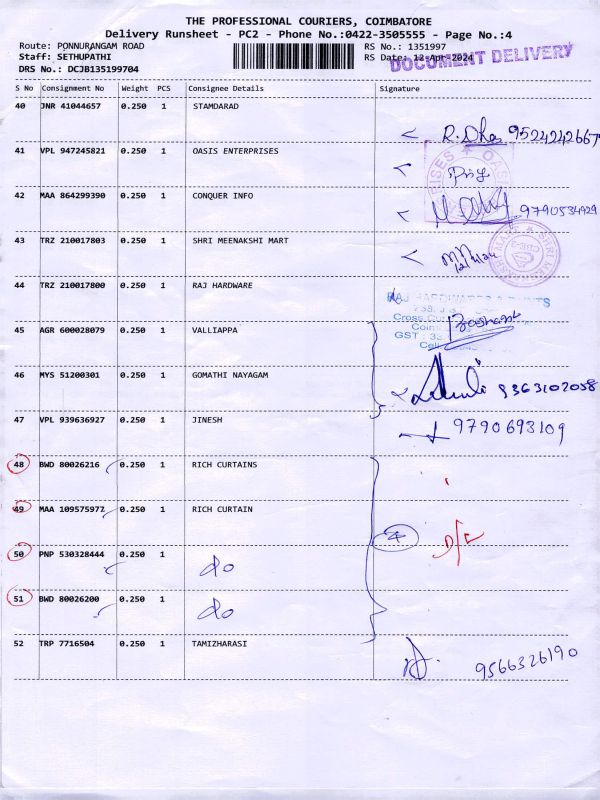 THE PROFESSIONAL COURIERS, COIMBATORE
Delivery Runsheet - PC2 - Phone No.:0422-3505555 - Page No.:4
Route: PONNURANGAM ROAD
RS No.: 1351997
Staff: SETHUPATHI
RS Date: 12-Apr-2024
DOCUMENT DELIVERY
DRS No.: DCJB135199704
S No Consignment No Weight PCS Consignee Details Signature
40 JNR 41044657 0.250 1 STAMDARD
9524242667
41 VPL 947245821 0.250 1 OASIS ENTERPRISES
42 MAA 864299390 0.250 1 CONQUER INFO
9790534929
43 TRZ 210017803 0.250 1 SHRI MEENAKSHI MART
44 TRZ 210017800 0.250 1 RAJ HARDWARE
45 AGR 600028079 0.250 1 VALLIAPPA
46 MYS 51200301 0.250 1 GOMATHI NAYAGAM
9363102058
47 VPL 939636927 0.250 1 JINESH
9790693109
48 BWD 80026216 0.250 1 RICH CURTAINS
49 MAA 109575972 0.250 1 RICH CURTAIN
D/L
50 PNP 530328444 0.250 1 do
51 BWD 80026200 0.250 1 do
52 TRP 7716504 0.250 1 TAMIZHARASI
9566326190